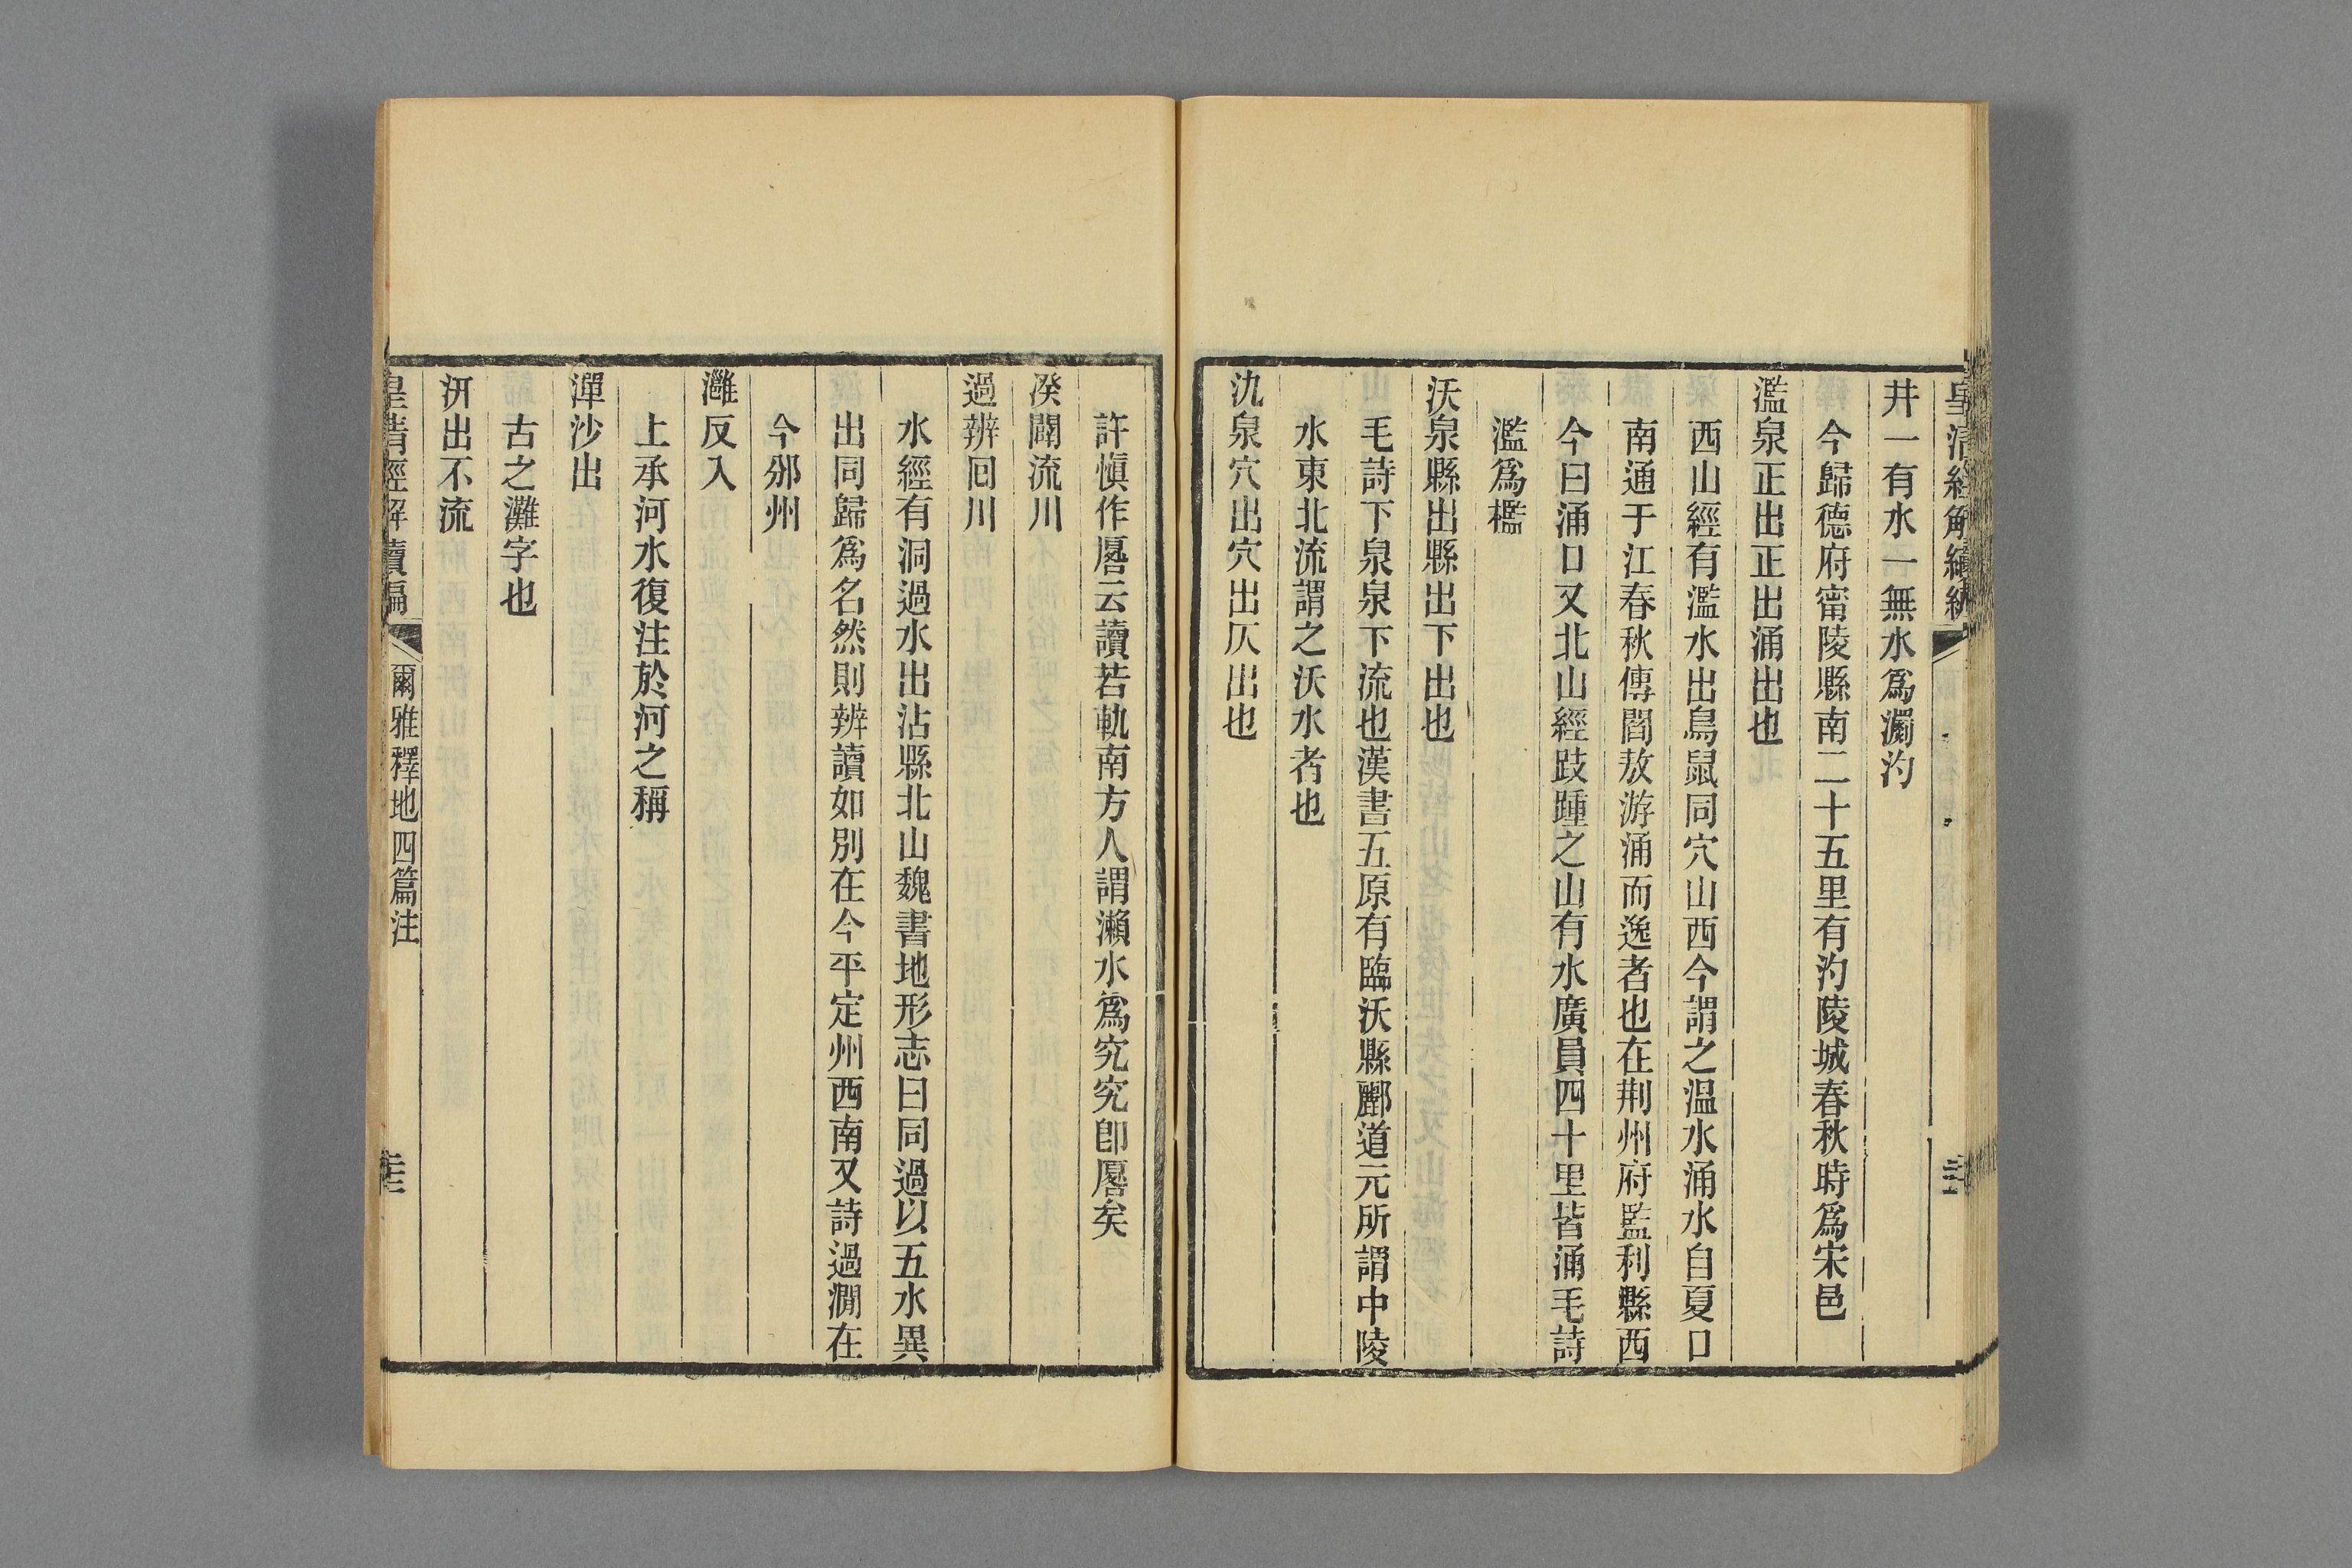 皇清經解續編
井一有水一無水爲瀱汋
今歸德府甯陵縣南二十五里有汋陵城春秋時爲宋邑
濫泉正出正出涌出也
西山經有濫水出鳥鼠同穴山西今謂之温水涌水自夏口
南通于江春秋傳閻敖游涌而逸者也在荆州府監利縣西
今曰涌口又北山經跂踵之山有水廣員四十里皆涌毛詩
濫爲檻
沃泉縣出縣出下出也
毛詩下泉泉下流也漢書五原有臨沃縣酈道元所謂中陵
水東北流謂之沃水者也
氿泉穴出穴出仄出也
許愼作厬云讀若軌南方人謂瀨水爲究究卽厬矣
湀闢流川
過辨回川
水經有洞過水出沾縣北山魏書地形志曰同過以五水異
出同歸爲名然則辨讀如別在今平定州西南又詩過澗在
今邠州
灉反入
上承河水復注於河之稱
潬沙出
古之灘字也
汧出不流
皇清經解續編
爾雅釋地四篇注